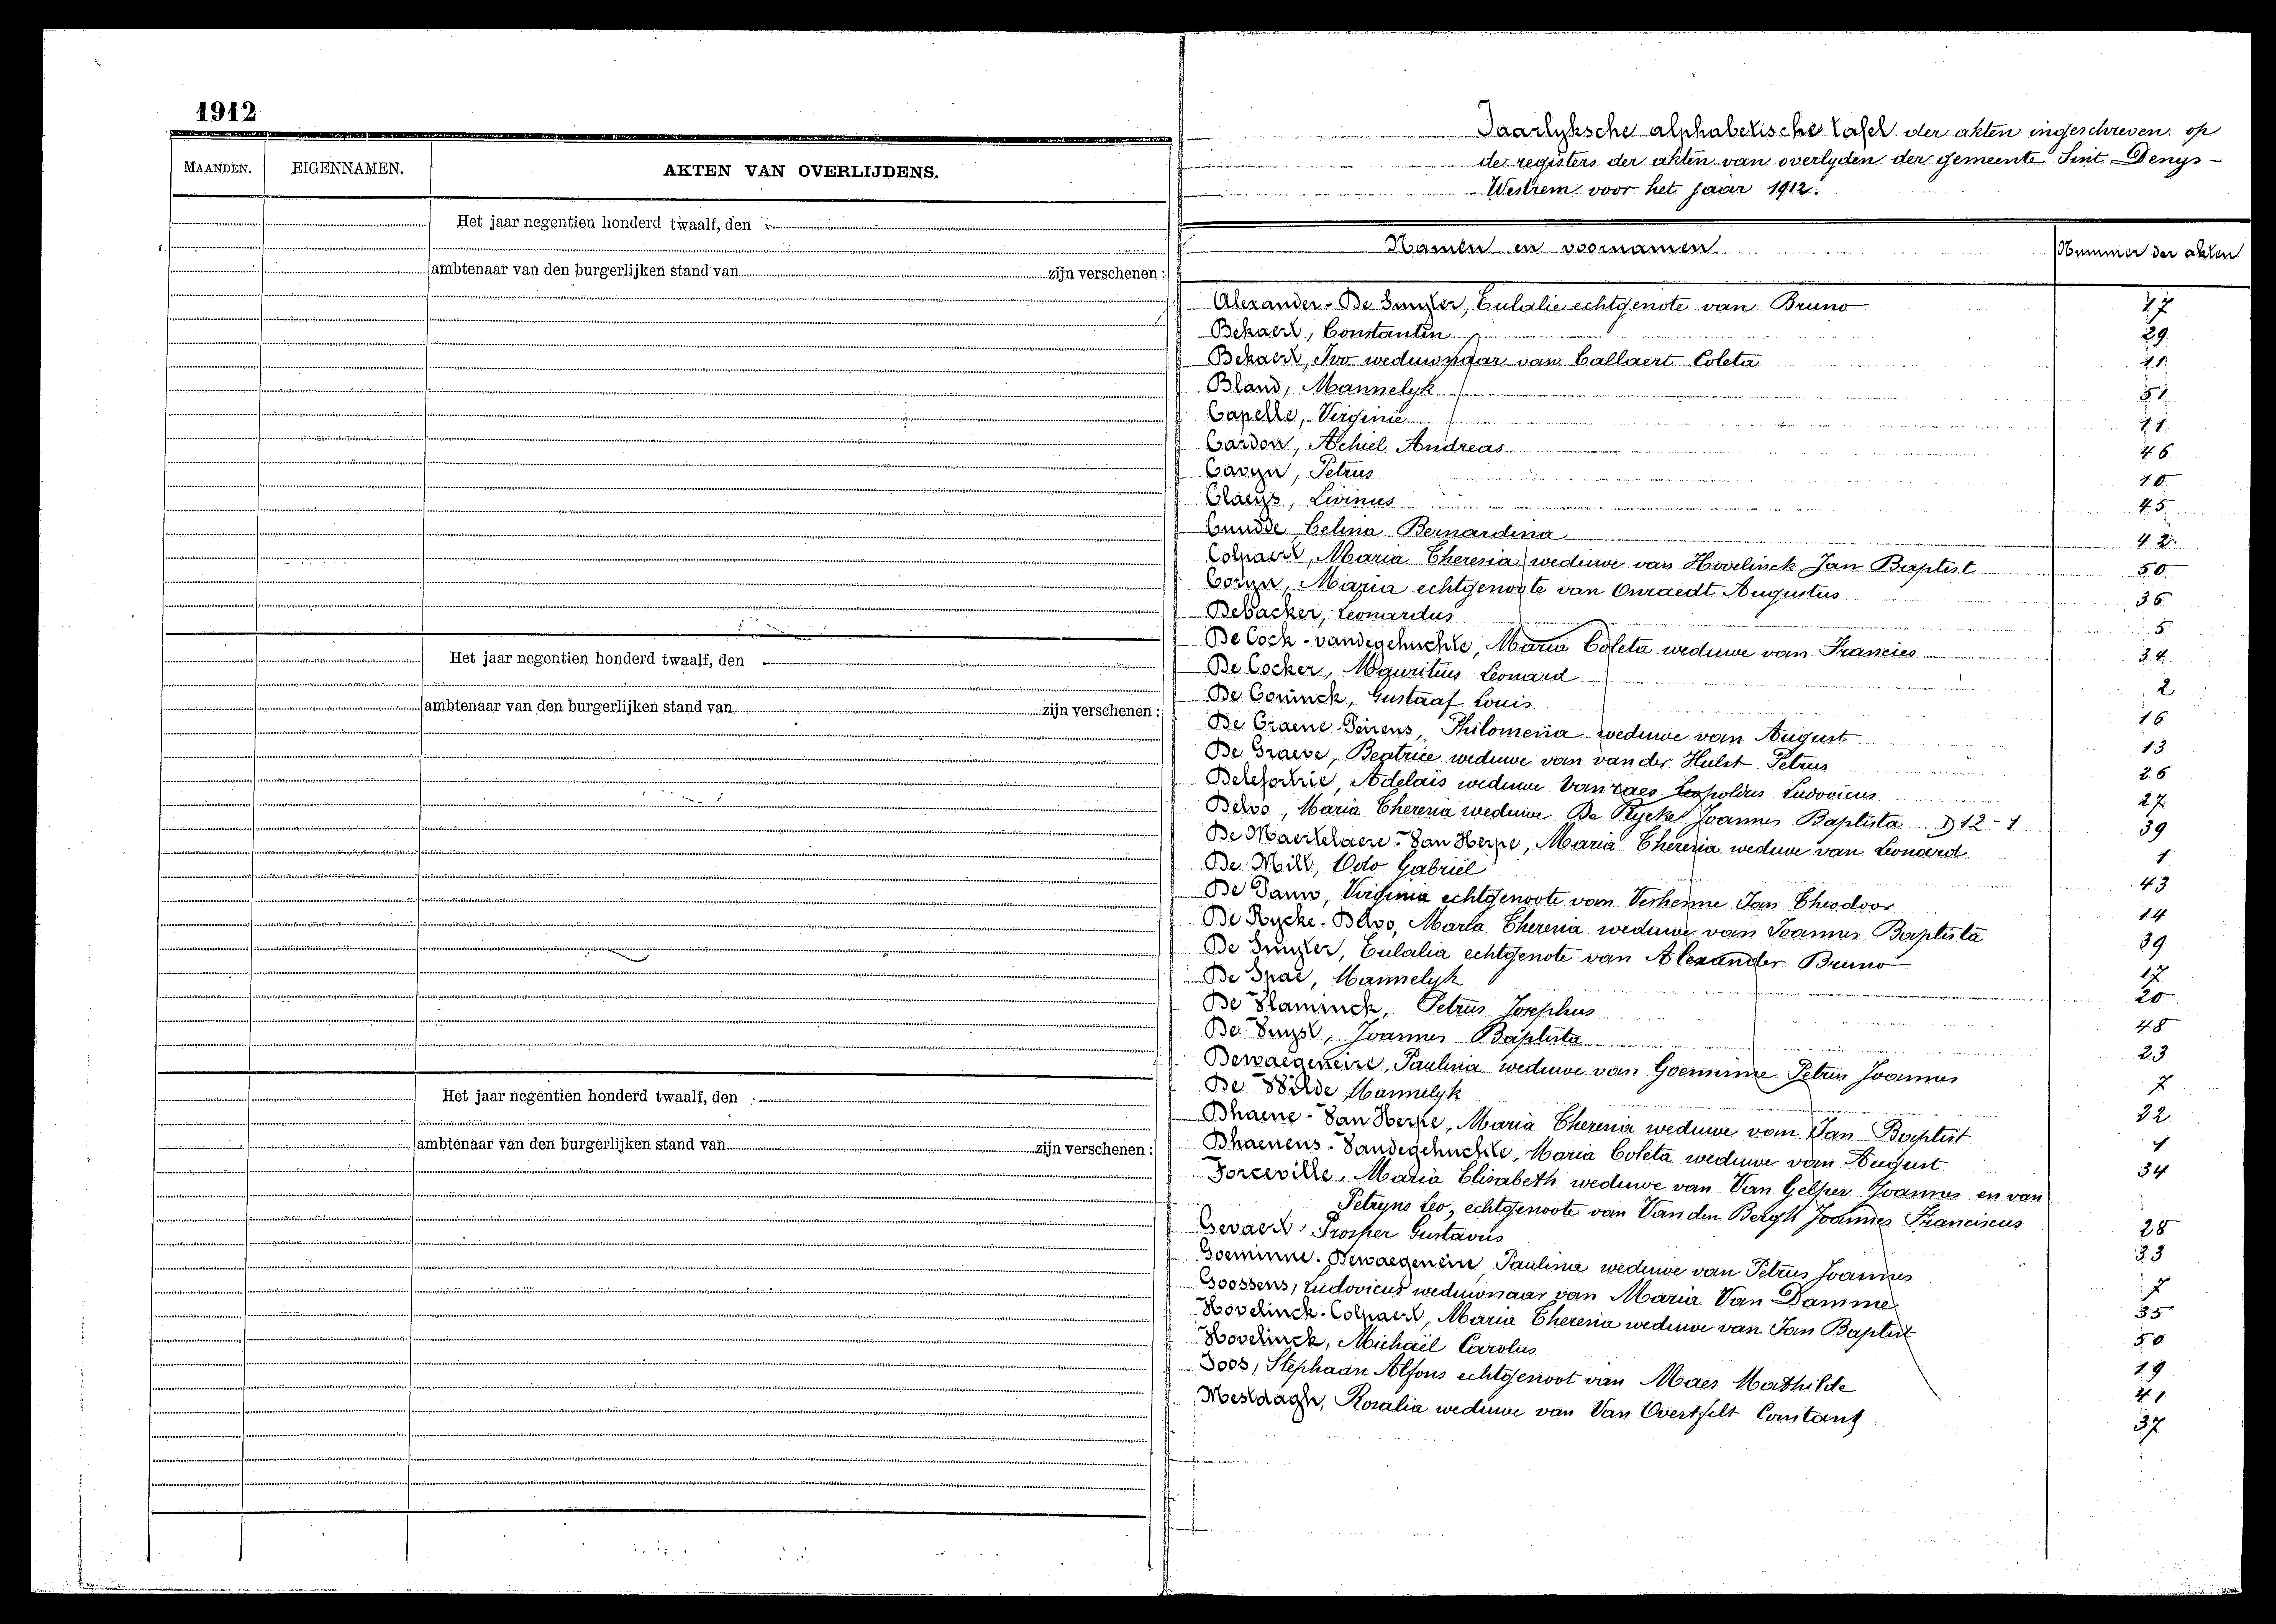 1912
MAANDEN.
EIGENNAMEN.
AKTEN VAN OVERLIJDENS.
Het jaar negentien honderd twaalf, den
ambtenaar van den burgerlijken stand van zijn verschenen :
Het jaar negentien honderd twaalf, den
ambtenaar van den burgerlijken stand van zijn verschenen :
Het jaar negentien honderd twaalf, den
ambtenaar van den burgerlijken stand van zijn verschenen :
Jaarlyksche alphabetische tafel der akten ingeschreven op
de registers der akten van overlyden der gemeente Sint Denys-
Westrem voor het jaar 1912.
Namen en voornamen
Nummer der akten
Alexander-De Smyter, Eulalie echtgenote van Bruno 17
Bekaert, Constantin 29
Bekaert, Ivo weduwnaar van Callaert Coleta 21
Bland, Mannelyk 51
Capelle, Virginie 11
Cardon, Achiel Andreas 46
Cavyn, Petrus 10
Claeys, Livinus 45
Cnudde Celina Bernardina 42
Colpaert, Maria Theresia weduwe van Hovelinck Jan Baptist 50
Coryn, Maria echtgenoote van Onraedt Augustus 36
Debacker, Leonardus 5
De Cock-vandegehuchte, Maria Coleta weduwe van Francies 34
De Cocker, Mauritius Leonard 2
De Coninck, Gustaaf Louis 16
De Craene-Peirens, Philomena weduwe van August 13
De Graeve, Beatrice weduwe van van der Hulst Petrus 26
Delefortrie, Adelaïs weduwe Vanraes Leopoldus Ludovicus 27
Delvo, Maria Theresia weduwe De Rycke Joannes Baptista D 12-1 39
De Maertelaere-Van Herpe, Maria Theresia weduwe van Leonard 1
De Mill, Odo Gabriël 43
De Pauw, Virginia echtgenoote van Verhenne Jan Theodoor 14
De Rycke-Delvo, Maria Theresia weduwe van Joannes Baptista 39
De Smyter, Eulalia echtgenote van Alexander Bruno 17
De Spae, Mannelyk 20
De Vlaminck, Petrus Josephus 48
De Vuyst, Joannes Baptista 23
Dewaegeneire, Paulina weduwe van Goeminne Petrus Joannes 7
De Wilde Mannelyk 32
Dhaene-Van Herpe, Maria Theresia weduwe van Jan Baptist 1
Dhaenens-Vandegehuchte, Maria Coleta weduwe van August 34
Forceville, Maria Elisabeth weduwe van Van Gelper Joannes en van
Petryns Leo, echtgenoote van Van den Bergh Joannes Franciscus 28
Gevaert Prosper Gustavus 33
Goeminne-Dewaegeneire Paulina weduwe van Petrus Joannes 7
Goossens, Ludovicus weduwnaar van Maria Van Damme 35
Hovelinck-Colpaert, Maria Theresia weduwe van Jan Baptist 50
Hovelinck, Michaël Carolus 19
Joos, Stephaan Alfons echtgenoot van Maes Mathilde 41
Mestdagh, Rosalia weduwe van Van Overtfelt Constant 37